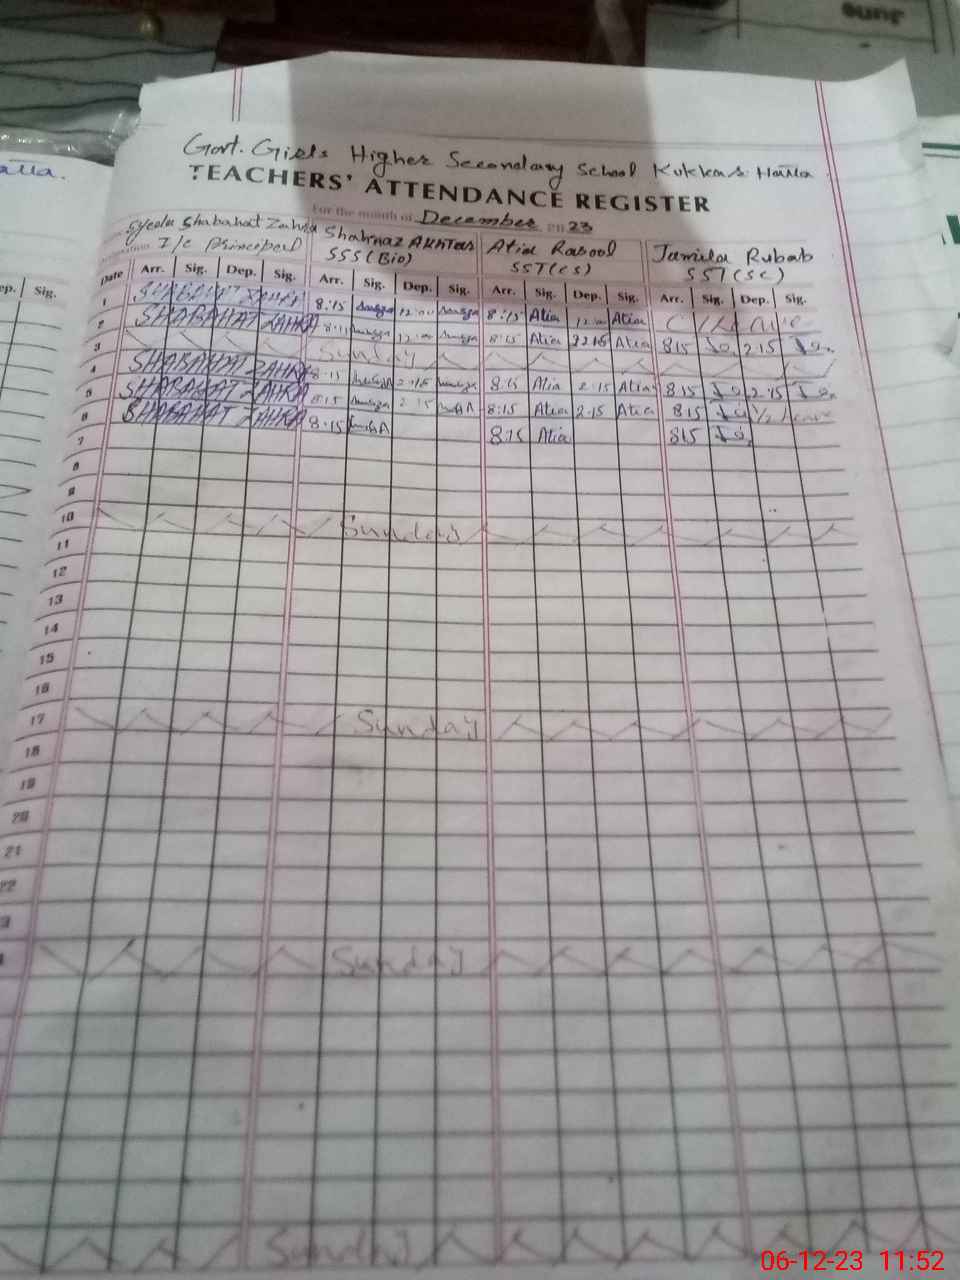 Govt. Girls Higher Secondary School Kukkar Hatta
TEACHERS' ATTENDANCE REGISTER
For the month of December 2023
Syeda Shabahat Zahra Shahnaz Akhtar Atia Rasool Jamila Rubab
I/c Principal SSS (Bio) SST (CS) SST (SC)
Date Arr. Sig. Dep. Sig. Arr. Sig. Dep. Sig. Arr. Sig. Dep. Sig. Arr. Sig. Dep. Sig.
1 SHABAHAT ZAHRA 8:15 12:00 8:15 Atia 12:00 Atia C/Leave
2 SHABAHAT ZAHRA 8:15 12:00 8:15 Atia Atia 8:15 2:15
3 Sunday
4 SHABAHAT ZAHRA 8:15 2:15 8:15 Atia 2:15 Atia 8:15 2:15
5 SHABAHAT ZAHRA 8:15 2:15 8:15 Atia 2:15 Atia 8:15 1/2 Leave
6 SHABAHAT ZAHRA 8:15 8:15 Atia 8:15
7
8
9
10 Sunday
11
12
13
14
15
16
17 Sunday
18
19
20
21
22
3
Sunday
Sunday
ep. Sig.
06-12-23 11:52